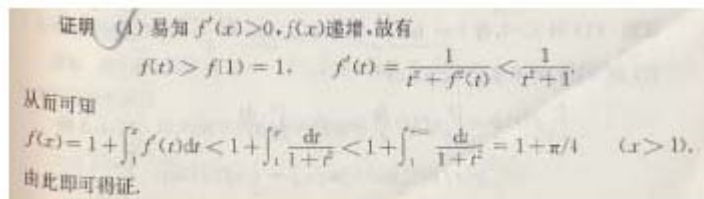 证明 (1) 易知 f′(x)>0, f(x)递增, 故有
f(t) > f(1) = 1, f′(t) = 1/(t²+f²(t)) < 1/(t²+1),
从而可知
f(x) = 1+∫₁ˣ f′(t)dt < 1+∫₁ˣ dt/(1+t²) < 1+∫₁⁺∞ dt/(1+t²) = 1+π/4 (x>1),
由此即可得证.